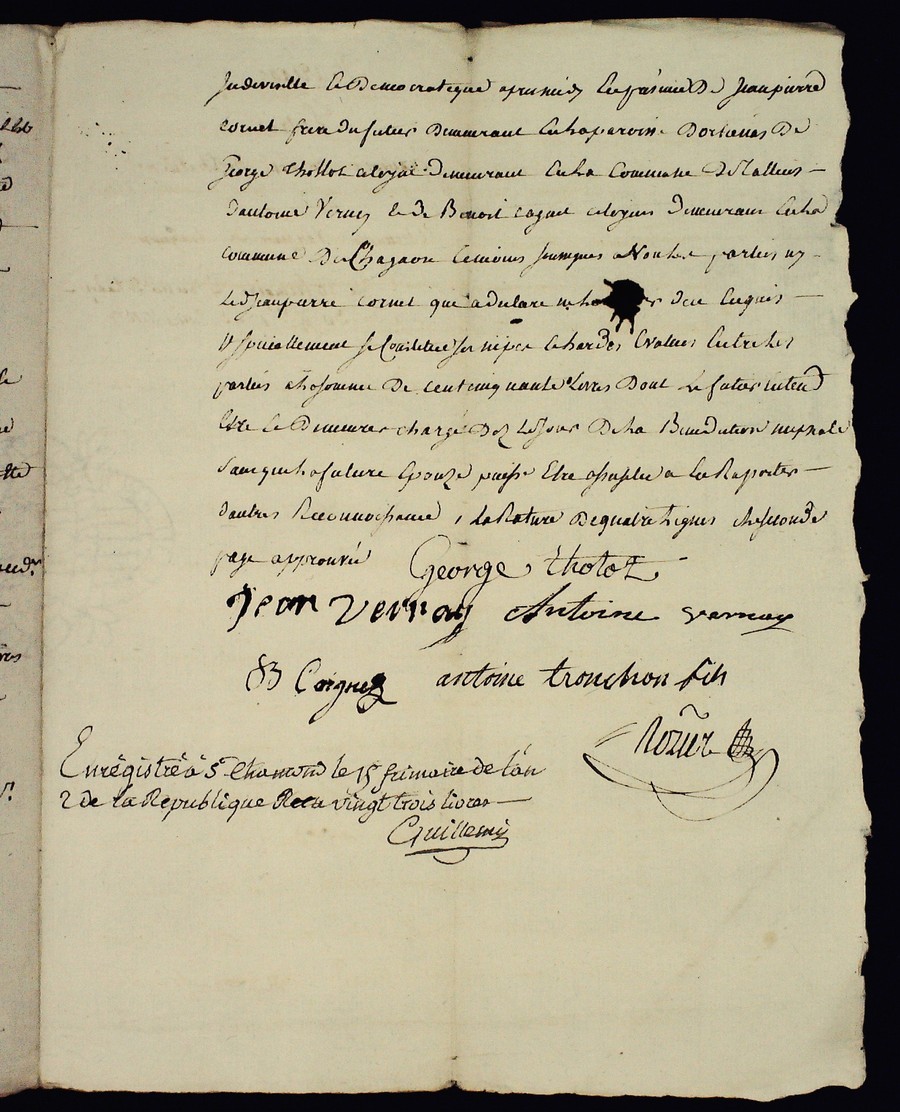 indivisible et Democratique apres midy En présence De Jeanpierre
cornet frere du futur Demeurant En la paroisse Dorlienas De
George thollot citoyen Demeurant En la Commune De Tallieus —
Dantoine Vernay et de Benoit cognet citoyens Demeurans En la
commune De Chagnon temoins parties ny —
Led Jeanpierre cornet que a declare ne de ce Enquis —
specialement se Constitue ses nipes et hardes Evaluées Entre les
parties a la somme De Cent cinquante Livres Dont le futur entend
Etre et Demeurer chargé Dez Le Jour De la Benediction nuptiale
Sans que la future Epouze puisse Etre assujetie a En Raporter —
dautres Reconnoissance, La Rature De quatre Lignes a la seconde
page approuvée George thotot
Jean Vernay Antoine vernay
B Cognet antoine tronchon fils
Enrégistré à St Chamond le 15 frimaire de l'an
2 de la Republique Recu vingt trois livres —
Guillemin